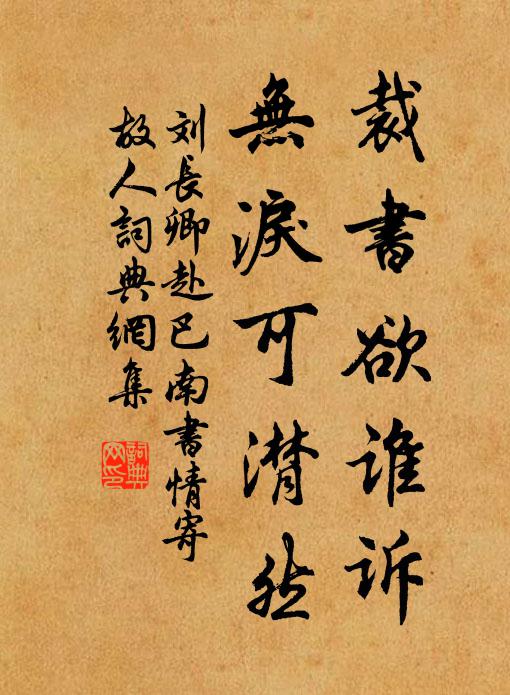 裁書欲谁诉
無淚可潸然
刘長卿赴巴南書情寄
故人詞典網集